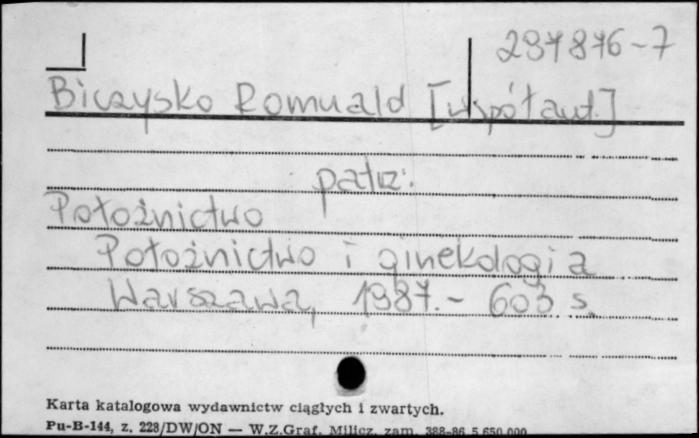 297876-7
Biczysko Romuald [współaut.]
patrz:
Położnictwo
Położnictwo i ginekologia
Warszawa, 1987. - 603 s.
Karta katalogowa wydawnictw ciągłych i zwartych.
Pu-B-144, z. 228/DW/ON — W.Z.Graf. Milicz, zam. 388-86 5 650 000